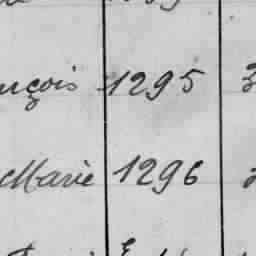 nçois 1295
Marie 1296